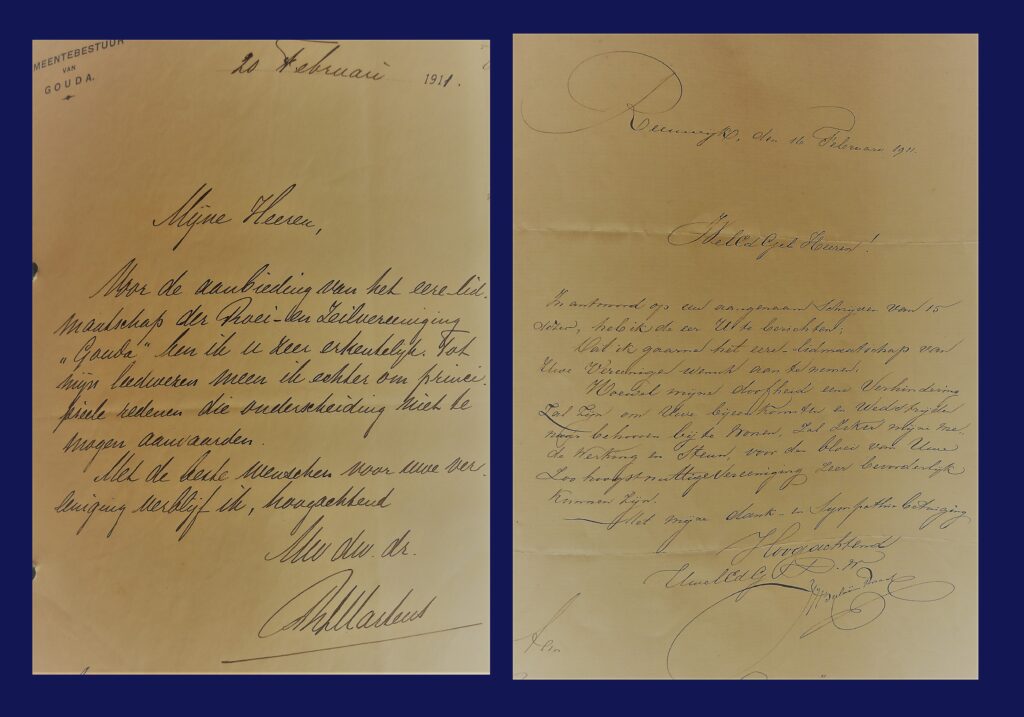 MEENTEBESTUUR
VAN
GOUDA.
20 Februari 1911.
Mijne Heeren,
Voor de aanbieding van het eere-lid-
maatschap der Roei- en Zeilvereeniging
„Gouda" ben ik u zeer erkentelijk. Tot
mijn leedwezen meen ik echter om princi-
pieele redenen die onderscheiding niet te
mogen aanvaarden.
Met de beste wenschen voor uwe ver-
eeniging verblijf ik, hoogachtend
Uw dw. dr.
Martens
Reeuwijk, den 16 Februari 1911.
WelEd Gel Heeren!
In antwoord op uw aangenaam schrijven van 15
dezer, heb ik de eer U te berichten;
Dat ik gaarne het eere-lidmaatschap van
Uwe Vereeniging wensch aan te nemen.
Hoewel mijne doofheid een Verhindering
zal zijn om Uwe bijeenkomsten en Wedstrijden
naar behooren bij te wonen, zal zeker mijne me-
de Werking en Steun, voor den bloei van Uwe
Zoo hoogst nuttige Vereeniging zeer bevorderlijk
kunnen zijn.
Met mijne dank- en Sympathie betuiging
Hoogachtend
UwelEd G D.W.
Aan